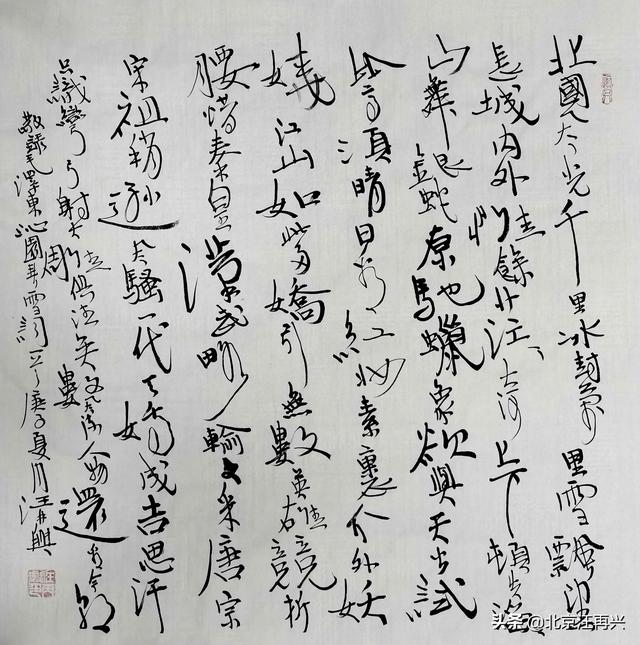 北國風光千里冰封萬里雪飄望
長城內外惟餘莽、大河上下頓失滔、
山舞銀蛇原馳蠟象欲與天公試
比高須晴日看紅妝素裹分外妖
嬈江山如此多嬌引無數英雄競折
腰惜秦皇漢武略輸文采唐宗
宋祖稍遜風騷一代天嬌成吉思汗
只識彎弓射大雕俱往矣數風流人物還看今朝
敬錄毛澤東沁園春雪詞庚子夏月汪再興
头条@北京汪再兴